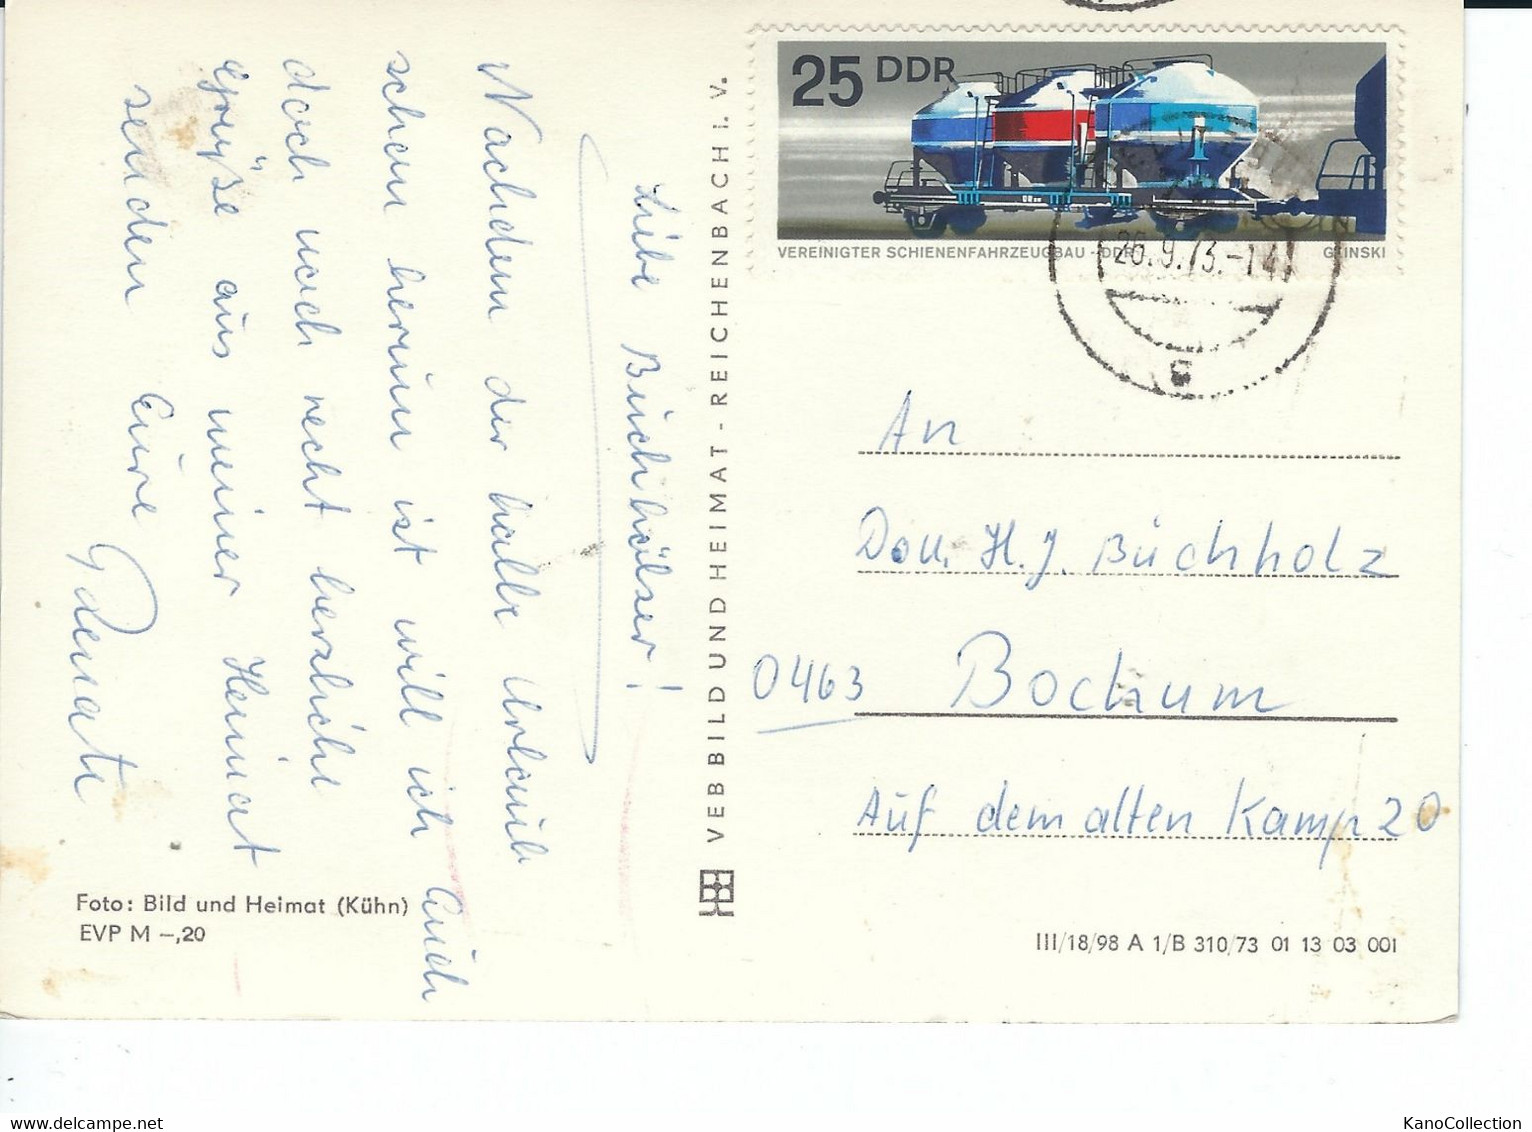 25 DDR
VEREINIGTER SCHIENENFAHRZEUGBAU - DDR GLINSKI
26.9.73.-14
Liebe Buchhölzer!
Nachdem der halbe Urlaub
schon herum ist will ich Euch
doch noch recht herzliche
Grüße aus meiner Heimat
senden Eure Renate
Foto: Bild und Heimat (Kühn)
EVP M –,20
VEB BILD UND HEIMAT - REICHENBACH i. V.
An
H. J. Buchholz
0463 Bochum
Auf dem alten Kamp 20
III/18/98 A 1/B 310/73 01 13 03 001
KanoCollection